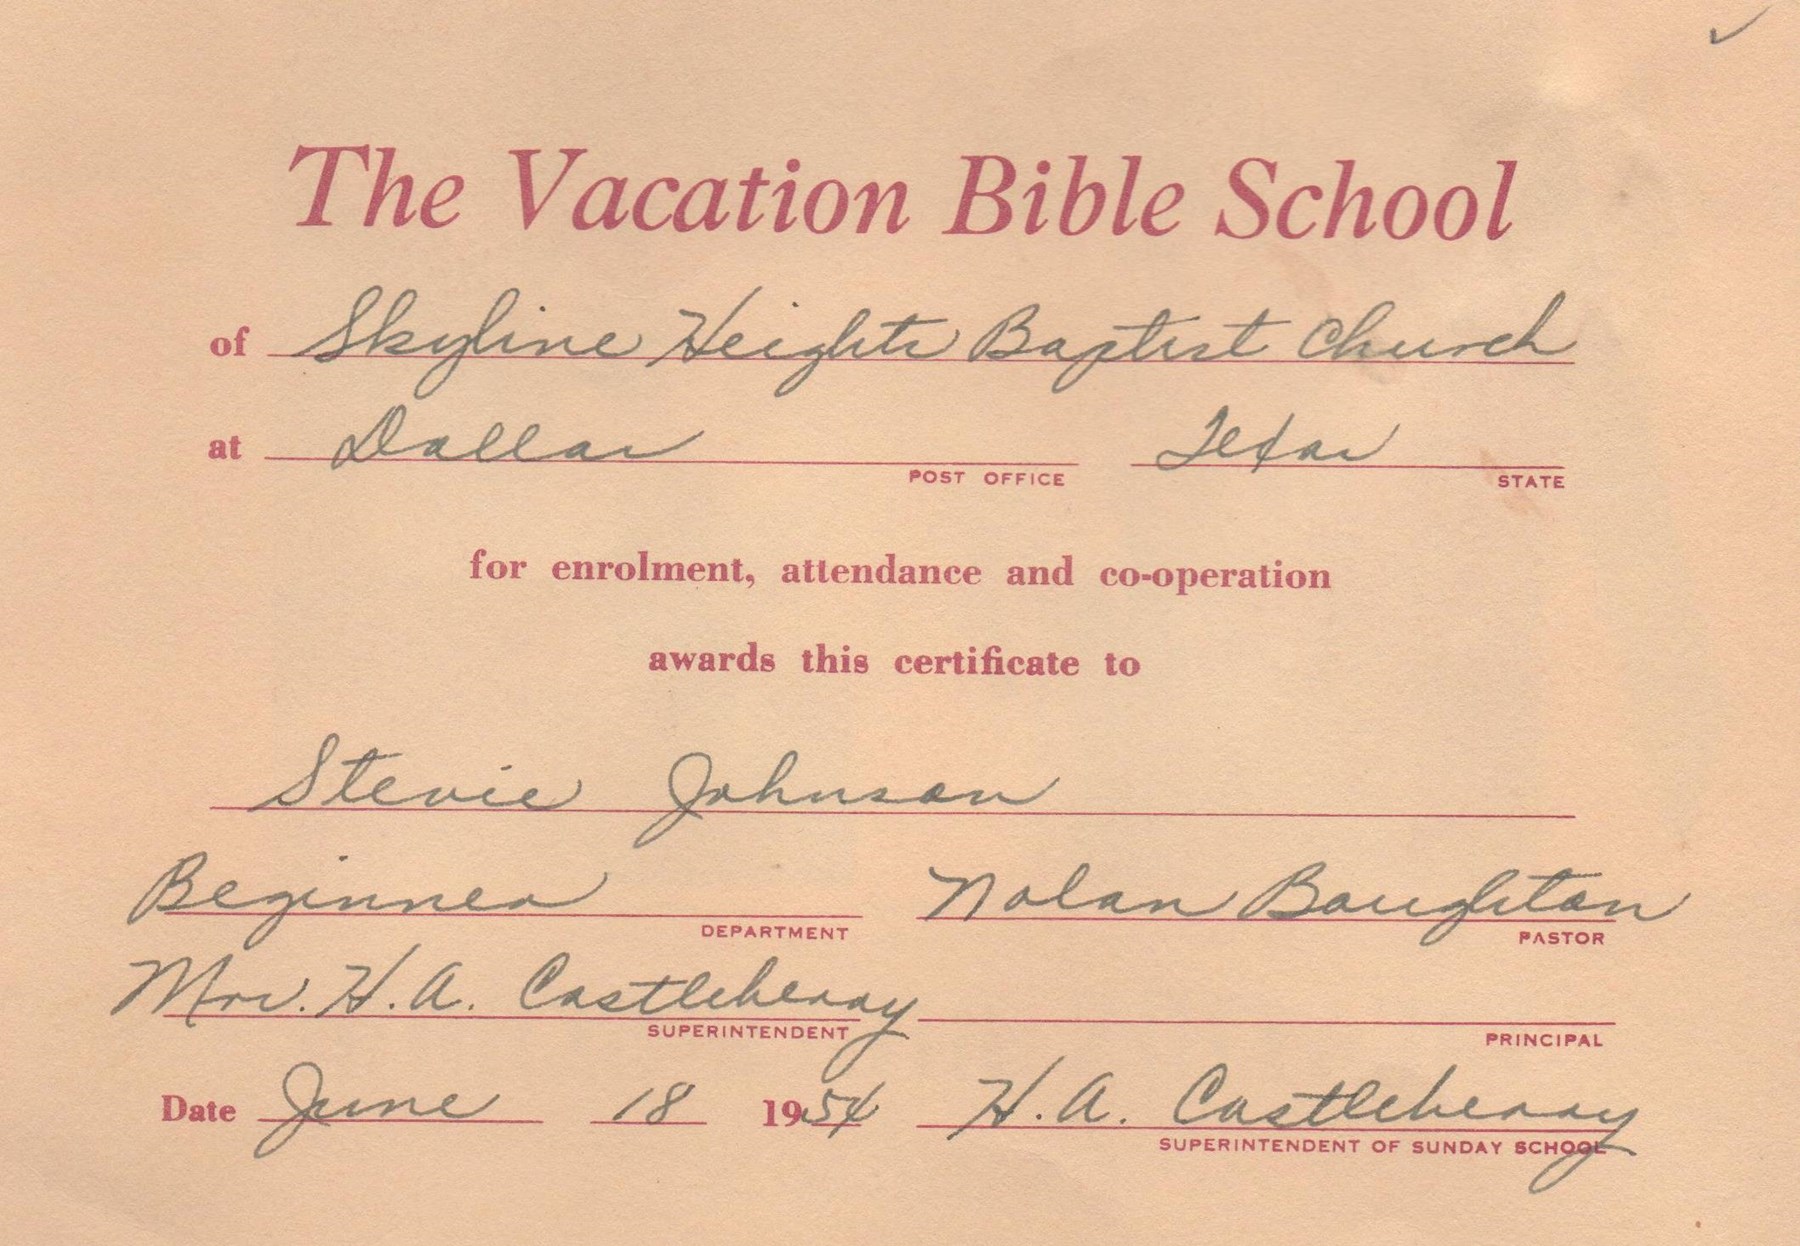 The Vacation Bible School
of Skyline Heights Baptist Church
at Dallas Texas
POST OFFICE STATE
for enrolment, attendance and co-operation
awards this certificate to
Stevie Johnson
Beginner Nolan Boughton
DEPARTMENT PASTOR
Mrs. H. A. Castleberry
SUPERINTENDENT PRINCIPAL
Date June 18 1954 H. A. Castleberry
SUPERINTENDENT OF SUNDAY SCHOOL